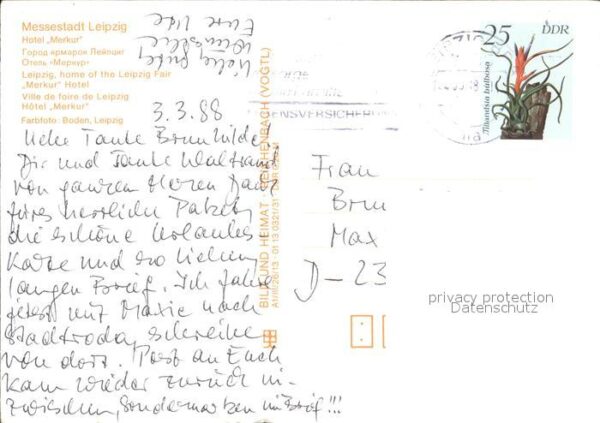 Messestadt Leipzig
Hotel „Merkur"
Город ярмарок Лейпциг
Отель «Меркур»
Leipzig, home of the Leipzig Fair
„Merkur" Hotel
Ville de foire de Leipzig
Hôtel „Merkur"
Farbfoto: Boden, Leipzig
3.3.88
Liebe Tante Brunhilde!
Dir und Tante Waltraud
von ganzem Herzen Dank
fürs herrliche Paket,
die schöne
Karte und so lieben
langen Brief. Ich fahre
jetzt mit Maxie nach
Stadtroda, schreibe
von dort. Post an Euch
kam wieder zurück in-
zwischen, Sondermarken im Brief!!!
Viele gute
Wünsche
Eure
BILD UND HEIMAT REICHENBACH (VOGTL)
A1/III/26/13 01 13 0321/31
25 DDR
Tillandsia bulbosa
ENSVERSICHERU
Frau
Brun
Max
D-23
privacy protection
Datenschutz